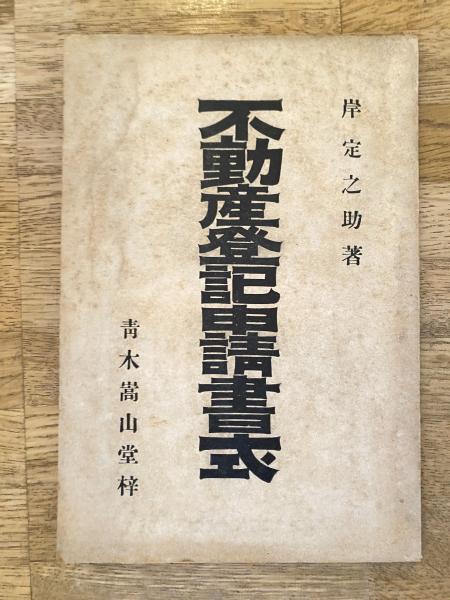 岸定之助著
不動産登記申請書式
青木嵩山堂梓